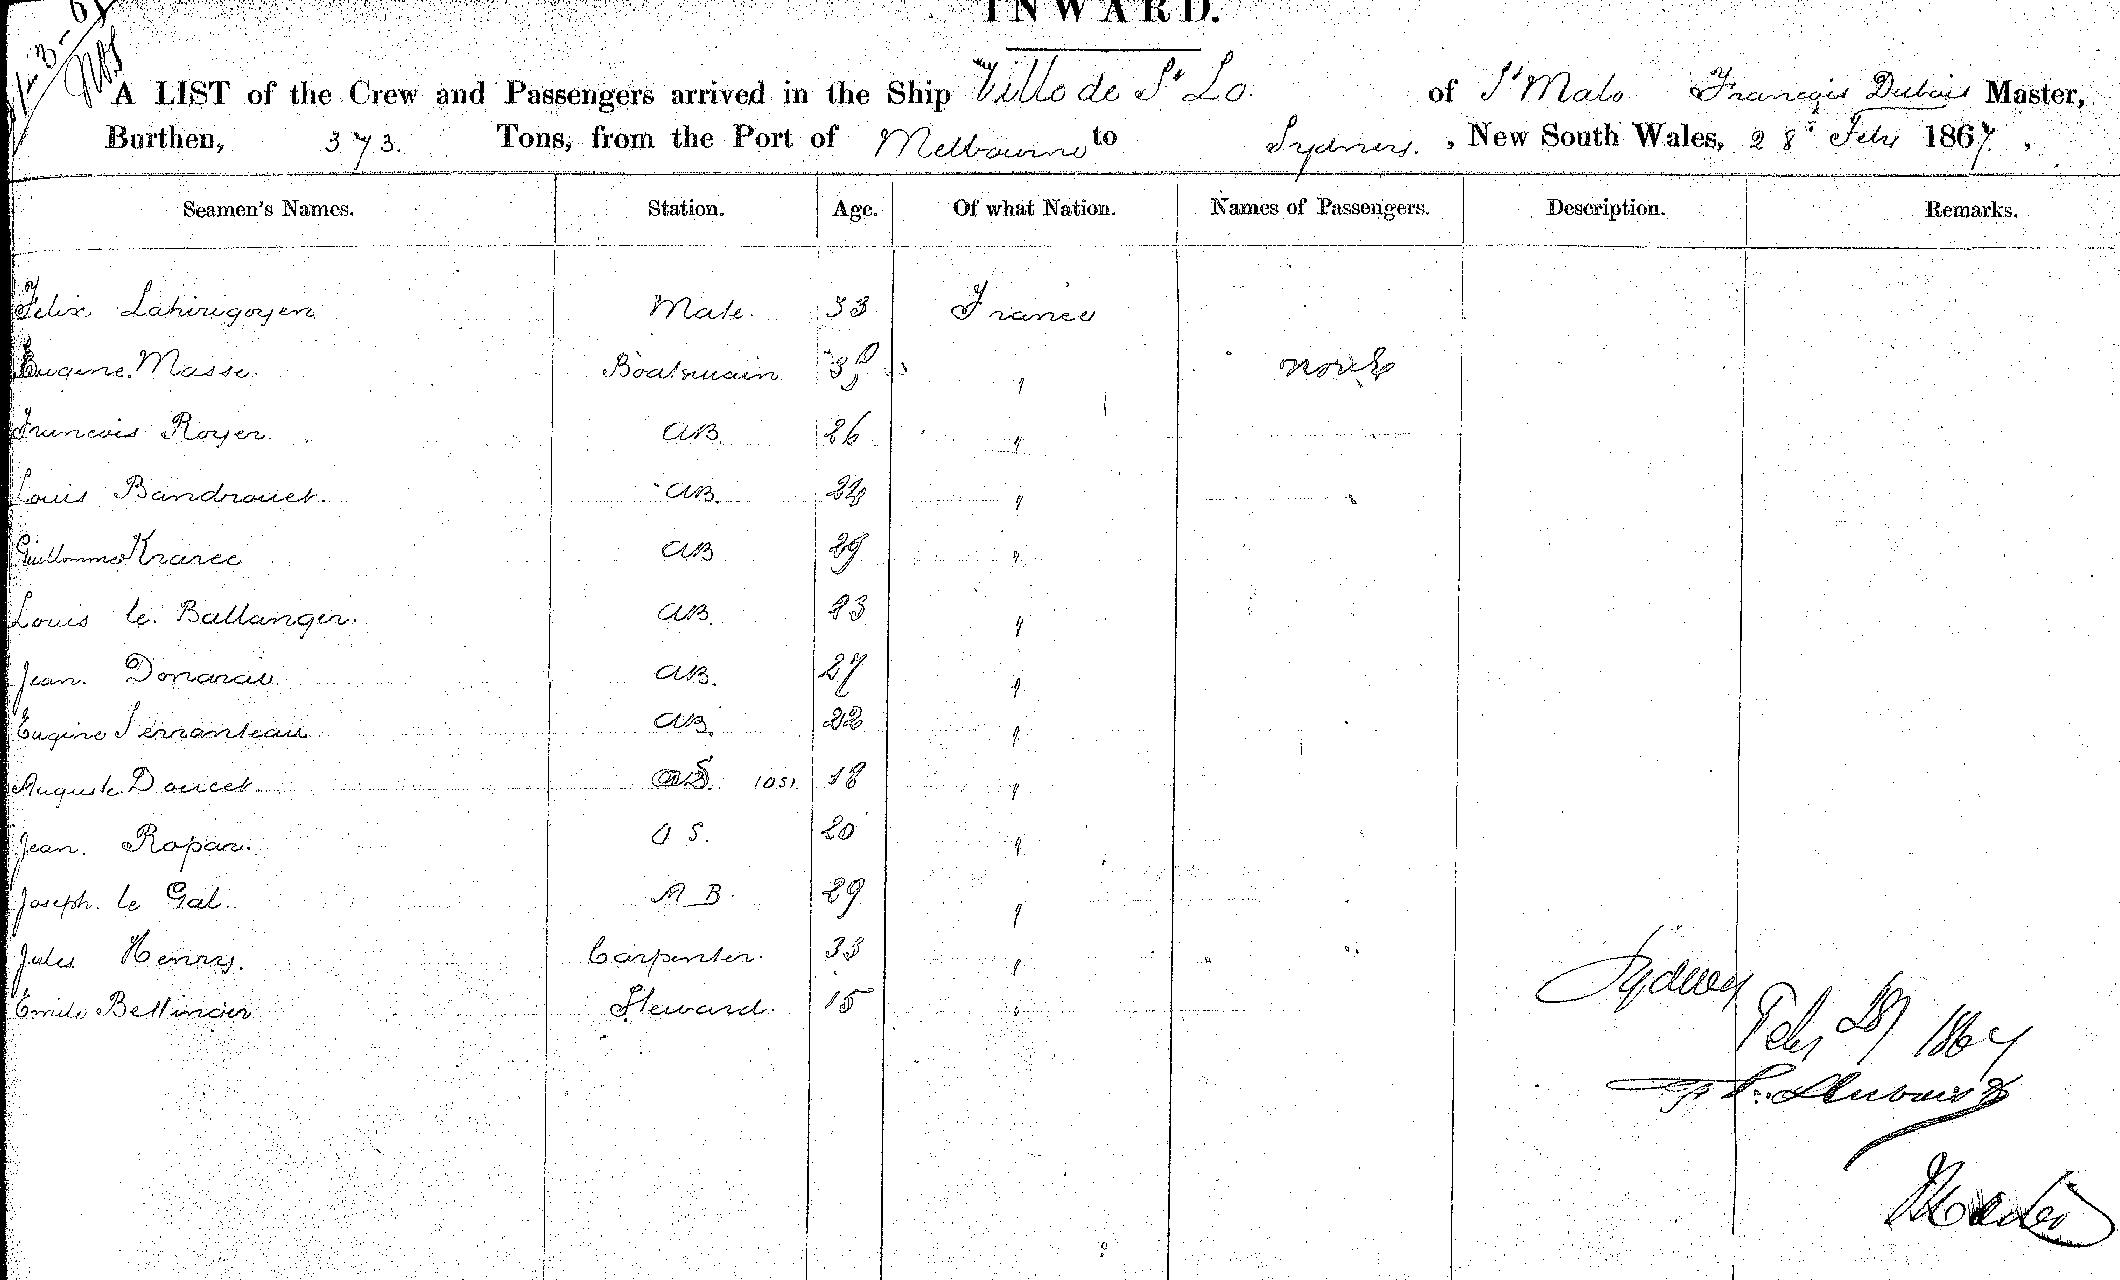 INWARD.
A LIST of the Crew and Passengers arrived in the Ship Ville de St Lo of St Malo François Dubois Master,
Burthen, 373. Tons, from the Port of Melbourne to Sydney, New South Wales, 28th Feby 1867.
Seamen's Names. Station. Age. Of what Nation. Names of Passengers. Description. Remarks.
Felix Lahirigoyen Mate. 33 France
Eugene Masse Boatswain "
none
Francois Royer AB. 26 "
Louis Bandrouet. AB. "
Guillaume AB 29 "
Louis le Ballanger. AB. 23 "
Jean AB. 27 "
Eugine AB. 22 "
Auguste Doucet OS. 18 "
Jean Ropar. O S. 20 "
Joseph le Gal. A B. 29 "
Jules Henry. Carpenter. 33 "
Emile Steward. 15 "
Sydney
Feby 28 1867
Dubois
Master